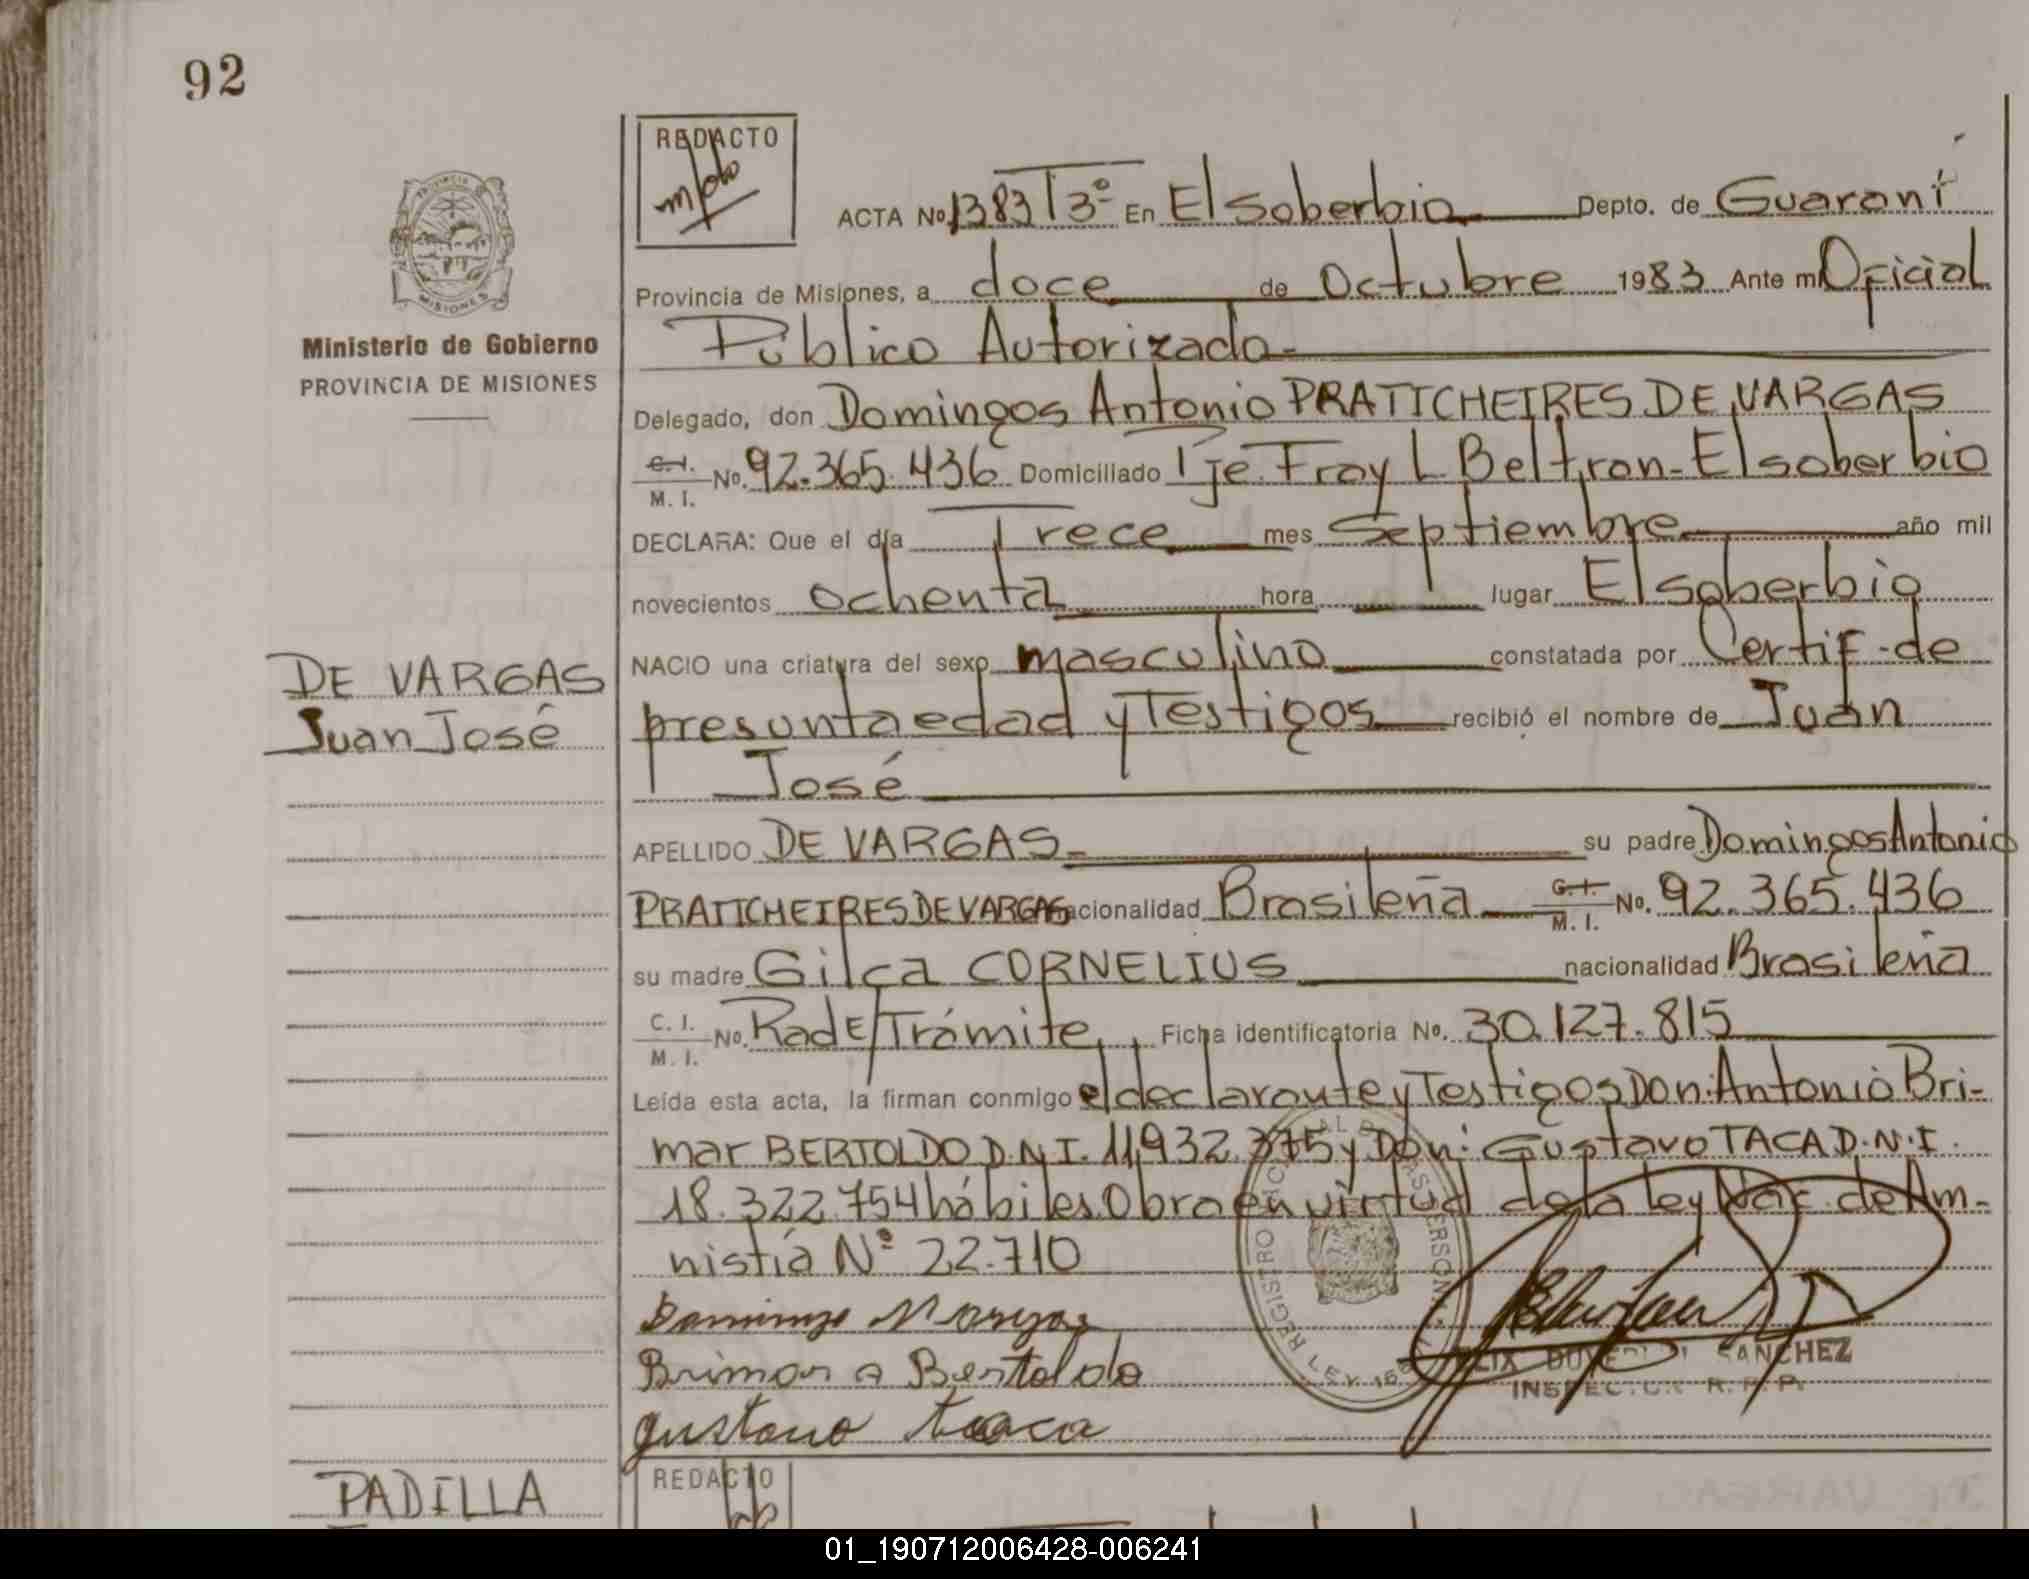 92
REDACTO
ACTA No. 1383 T 3º En El Soberbio Depto. de Guaraní
Provincia de Misiones, a doce de Octubre 1983 Ante mi Oficial
Público Autorizado
Ministerio de Gobierno
PROVINCIA DE MISIONES
Delegado, don Domingos Antonio PRATTCHEIRES DE VARGAS
C. I.
M. I. No. 92.365.436 Domiciliado Tje. Fray L Beltran - El Soberbio
DECLARA: Que el día Trece mes Septiembre año mil
novecientos ochenta hora lugar El Soberbio
NACIO una criatura del sexo masculino constatada por Certif. de
presunta edad y Testigos recibió el nombre de Juan
José
DE VARGAS
Juan José
APELLIDO DE VARGAS su padre Domingos Antonio
PRATTCHEIRES DE VARGAS nacionalidad Brasileña C. I.
M. I. No. 92.365.436
su madre Gilca CORNELIUS nacionalidad Brasileña
C. I.
M. I. No. Rad E/Trámite, Ficha identificatoria No. 30.127.815
Leída esta acta, la firman conmigo el declarante y Testigos Don: Antonio Bri-
mar BERTOLDO D.N.I. 11.932.375 y Don: Gustavo TACA D.N.I.
18.322.754 hábiles. Obra en virtud de la Ley Nac. de Am-
nistía Nº 22.710
Brimar A Bertoldo
gustavo taaca
SANCHEZ
INSPECTOR R. P. P.
REDACTO
PADILLA
01_190712006428-006241